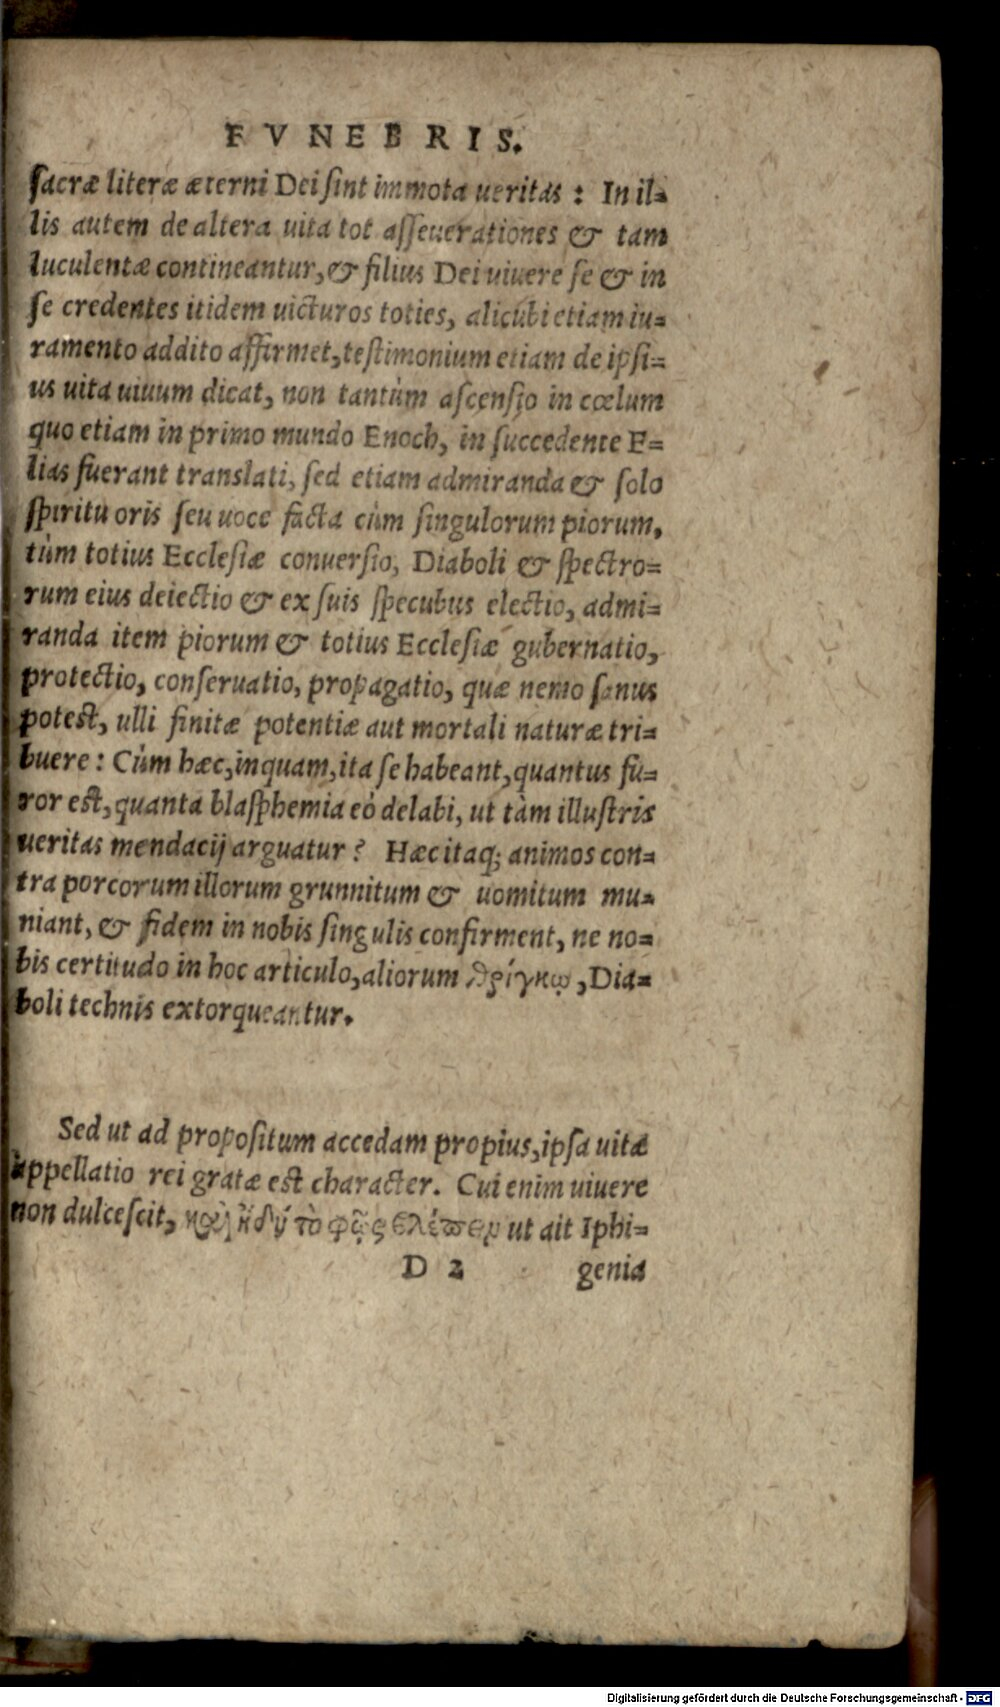 FVNEBRIS.
sacræ literæ æterni Dei sint immota ueritas : In il=
lis autem de altera uita tot asseuerationes & tam
luculentæ contineantur, & filius Dei uiuere se & in
se credentes itidem uicturos toties, alicubi etiam iu=
ramento addito affirmet, testimonium etiam de ipsi=
us uita uiuum dicat, non tantùm ascensio in cœlum
quo etiam in primo mundo Enoch, in succedente E=
lias fuerant translati, sed etiam admiranda & solo
spiritu oris seu uoce facta cùm singulorum piorum,
tùm totius Ecclesiæ conuersio, Diaboli & spectro=
rum eius deiectio & ex suis specubus electio, admi=
randa item piorum & totius Ecclesiæ gubernatio,
protectio, conseruatio, propagatio, quæ nemo sanus
potest, ulli finitæ potentiæ aut mortali naturæ tri=
buere : Cùm hæc, inquam, ita se habeant, quantus fu=
ror est, quanta blasphemia eò delabi, ut tàm illustris
ueritas mendacij arguatur ? Hæc itaq; animos con=
tra porcorum illorum grunnitum & uomitum mu=
niant, & fidem in nobis singulis confirment, ne no=
bis certitudo in hoc articulo, aliorum θρίγκῳ, Dia=
boli technis extorqueantur.
Sed ut ad propositum accedam propius, ipsa uitæ
appellatio rei gratæ est character. Cui enim uiuere
non dulcescit, καὶ ἡδὺ τὸ φῶς βλέπειν ut ait Iphi=
D 2 genia
Digitalisierung gefördert durch die Deutsche Forschungsgemeinschaft - DFG